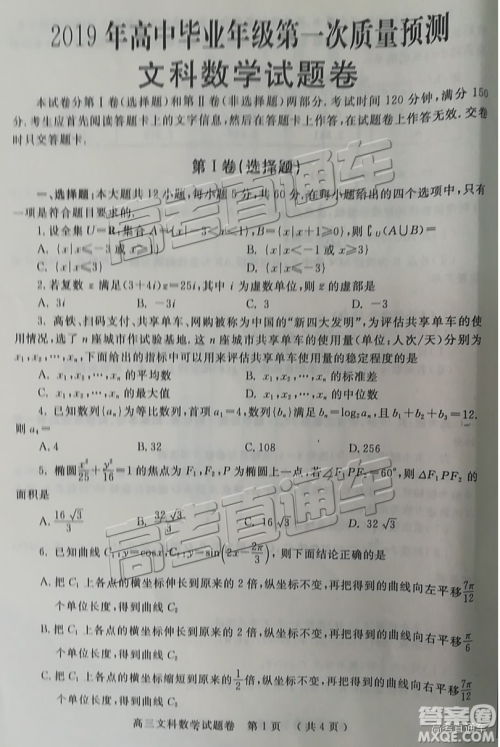 2019 年高中毕业年级第一次质量预测
文科数学试题卷
本试卷分第Ⅰ卷(选择题)和第Ⅱ卷(非选择题)两部分,考试时间 120 分钟,满分 150
分.考生应首先阅读答题卡上的文字信息,然后在答题卡上作答,在试题卷上作答无效.交卷
时只交答题卡.
第Ⅰ卷(选择题)
一、选择题:本大题共 12 小题,每小题 5 分,共 60 分.在每小题给出的四个选项中,只有
一项是符合题目要求的.
1. 设全集 U=R,集合 A={x|-3<x<1},B={x|x+1≥0},则∁U(A∪B)=
A. {x|x≤-3 或 x≥1} B. {x|x<-1 或 x≥3}
C. {x|x≤3} D. {x|x≤-3}
2. 若复数 z 满足(3+4i)z=25i,其中 i 为虚数单位,则 z 的虚部是
A. 3i B. -3i C. 3 D. -3
3. 高铁、扫码支付、共享单车、网购被称为中国的“新四大发明”,为评估共享单车的使
用情况,选了 n 座城市作试验基地.这 n 座城市共享单车的使用量(单位:人次/天)分别为
x₁,x₂,…,xₙ,下面给出的指标中可以用来评估共享单车使用量的稳定程度的是
A. x₁,x₂,…,xₙ 的平均数 B. x₁,x₂,…,xₙ 的标准差
C. x₁,x₂,…,xₙ 的最大值 D. x₁,x₂,…,xₙ 的中位数
4. 已知数列{aₙ}为等比数列,首项 a₁=4,数列{bₙ}满足 bₙ=log₂aₙ,且 b₁+b₂+b₃=12,
则 a₄=
A. 4 B. 32 C. 108 D. 256
5. 椭圆 x²/25+y²/16=1 的焦点为 F₁,F₂,P 为椭圆上一点,若∠F₁PF₂=60°,则 △F₁PF₂ 的
面积是
A. 16√3/3 B. 32√3/3 C. 16√3 D. 32√3
6. 已知曲线 C₁:y=cosx,C₂:y=sin(2x-2π/3),则下面结论正确的是
A. 把 C₁ 上各点的横坐标伸长到原来的 2 倍,纵坐标不变,再把得到的曲线向左平移 7π/12
个单位长度,得到曲线 C₂
B. 把 C₁ 上各点的横坐标伸长到原来的 2 倍,纵坐标不变,再把得到的曲线向右平移 π/6
个单位长度,得到曲线 C₂
C. 把 C₁ 上各点的横坐标缩短到原来的 1/2 倍,纵坐标不变,再把得到的曲线向右平移 7π/12
个单位长度,得到曲线 C₂
高三文科数学试题卷 第 1 页 (共 4 页)
高考直通车
高考直通车
高考直通车
答案圈
MXQE.COM